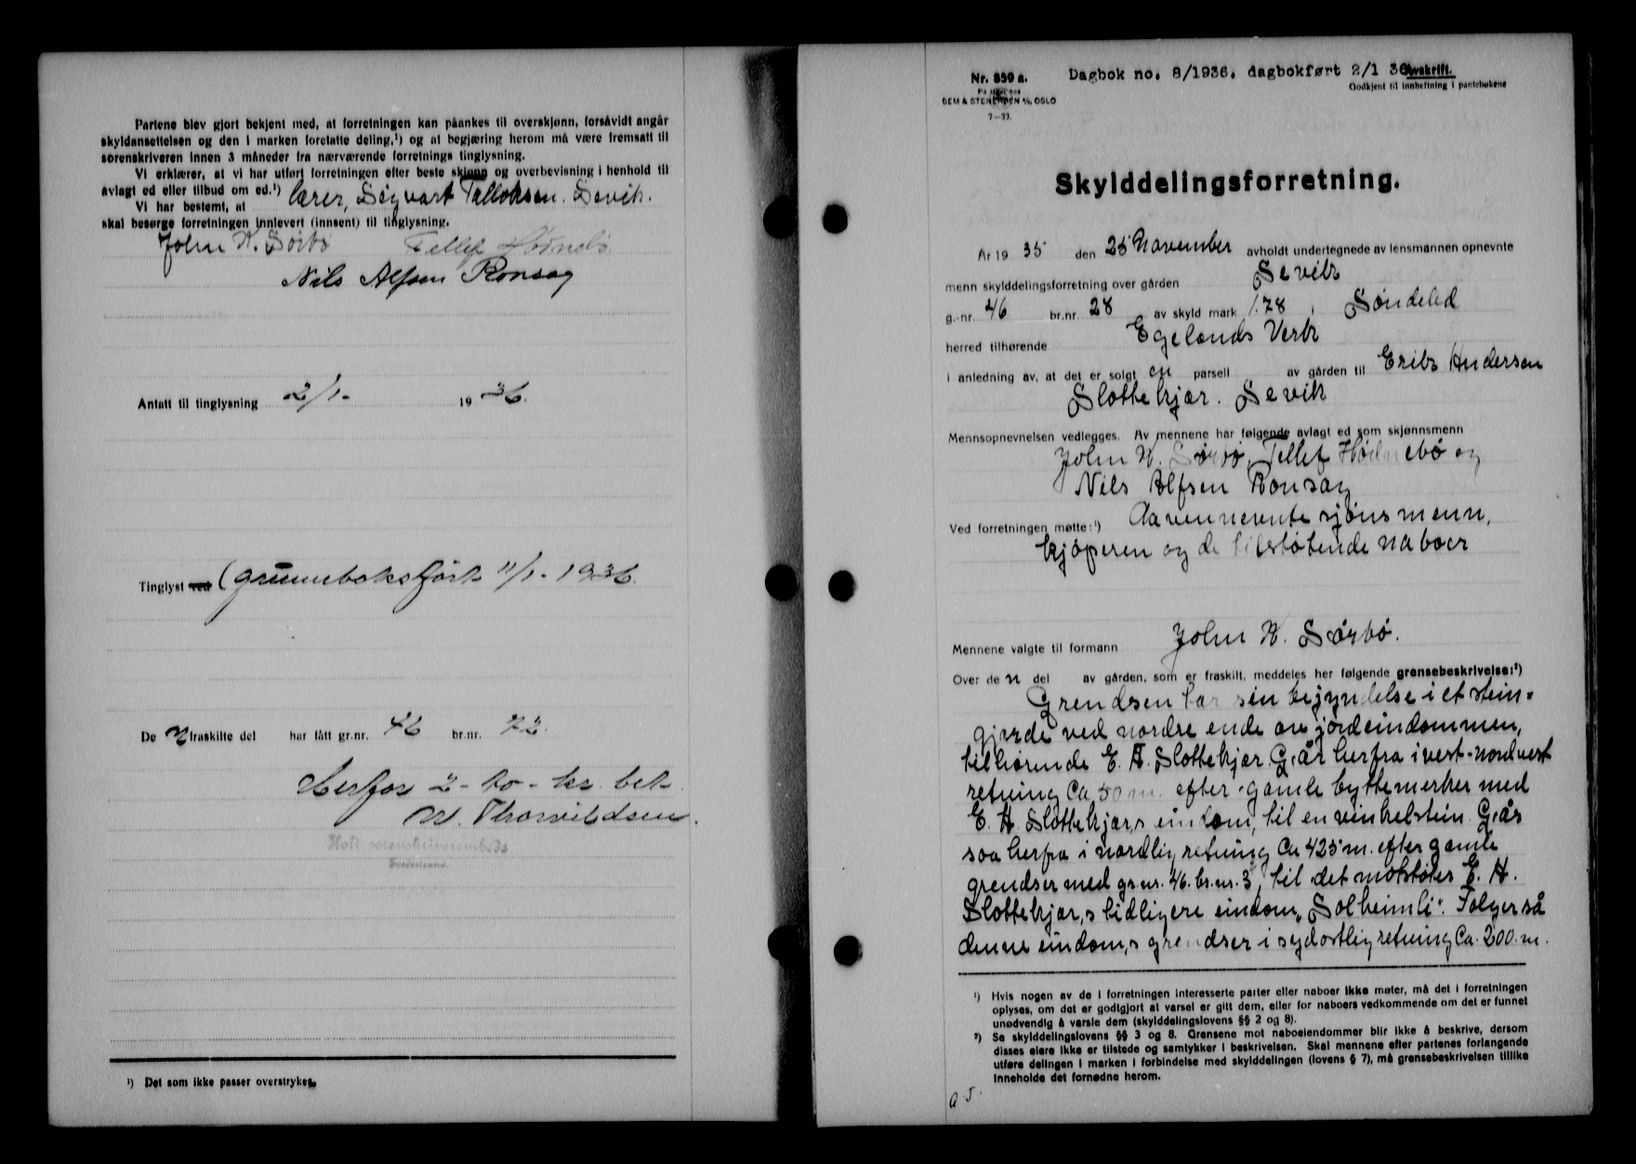 Partene blev gjort bekjent med, at forretningen kan påankes til overskjønn, forsåvidt angår
skyldansettelsen og den i marken foretatte deling,¹) og at begjæring herom må være fremsatt til
sorenskriveren innen 3 måneder fra nærværende forretnings tinglysning.
Vi erklærer, at vi har utført forretningen efter beste skjønn og overbevisning i henhold til
avlagt ed eller tilbud om ed.¹)
Vi har bestemt, at lærer, Sigvart Tallaksen. Sevik.
skal besørge forretningen innlevert (innsent) til tinglysning.
John K. Sørbø Tellef Hødnebø
Nils Alfsen Ronsag
Antatt til tinglysning 2/1- 1936.
Tinglyst ved (grunnboksført 11/1- 1936.
De n fraskilte del har fått gr.nr. 46 br.nr. 72.
Herfor 2 - to - kr. bet.
W. Thorvildsen.
Holt sorenskriverembede
¹) Det som ikke passer overstrykes.
Nr. 839 a.
SEM & STENERSEN A/S, OSLO
7-33.
Dagbok no. 8/1936. dagbokført 2/1 36
Avskrift.
Godkjent til innheftning i pantebøkene
Skylddelingsforretning.
År 1935 den 25 November avholdt undertegnede av lensmannen opnevnte
menn skylddelingsforretning over gården Sevik
g.-nr. 46 br.nr. 28 av skyld mark 1.78 i Søndeled
herred tilhørende Egelands Verk
i anledning av, at det er solgt en parsell av gården til Erik Andersen
Slottekjær. Sevik
Mennsopnevnelsen vedlegges. Av mennene har følgende avlagt ed som skjønnsmenn
John K. Sørbø, Tellef Hødnebø og
Nils Alfsen Ronsag
Ved forretningen møtte:¹) Aavennevnte sjønsmenn,
kjøperen og de tilstøtende naboer
Mennene valgte til formann John K. Sørbø.
Over de n del av gården, som er fraskilt, meddeles her følgende grensebeskrivelse:²)
Grendsen tar sin begyndelse i et stein=
gjærde ved nordre ende av jordeindommen,
tilhørende E. A. Slottekjær. Går herfra i vest-nordvest
retning Ca 50 m. efter gamle byttemerker med
E. A. Slottekjær,s eindom, til en vinkelstein. Går
saa herfra i nordlig retning Ca 425 m. efter gamle
grendser med gr.nr. 46. br.nr. 3, til det motstøter E. A.
Slottekjær,s tidligere eindom „Solheimli“. Følger så
denne eindom,s grendser i sydostlig retning Ca. 200. m.
¹) Hvis nogen av de i forretningen interesserte parter eller naboer ikke møter, må det i forretningen
oplyses, om det er godtgjort at varsel er gitt dem, eller for naboers vedkommende om det er funnet
unødvendig å varsle dem (skylddelingslovens §§ 2 og 8).
²) Se skylddelingslovens §§ 3 og 8. Grensene mot naboeiendommer blir ikke å beskrive, dersom
disses eiere ikke er tilstede og samtykker i beskrivelsen. Skal mennene efter partenes forlangende
utføre delingen i marken i forbindelse med skylddelingen (lovens § 7), må grensebeskrivelsen tillike
inneholde det fornødne herom.